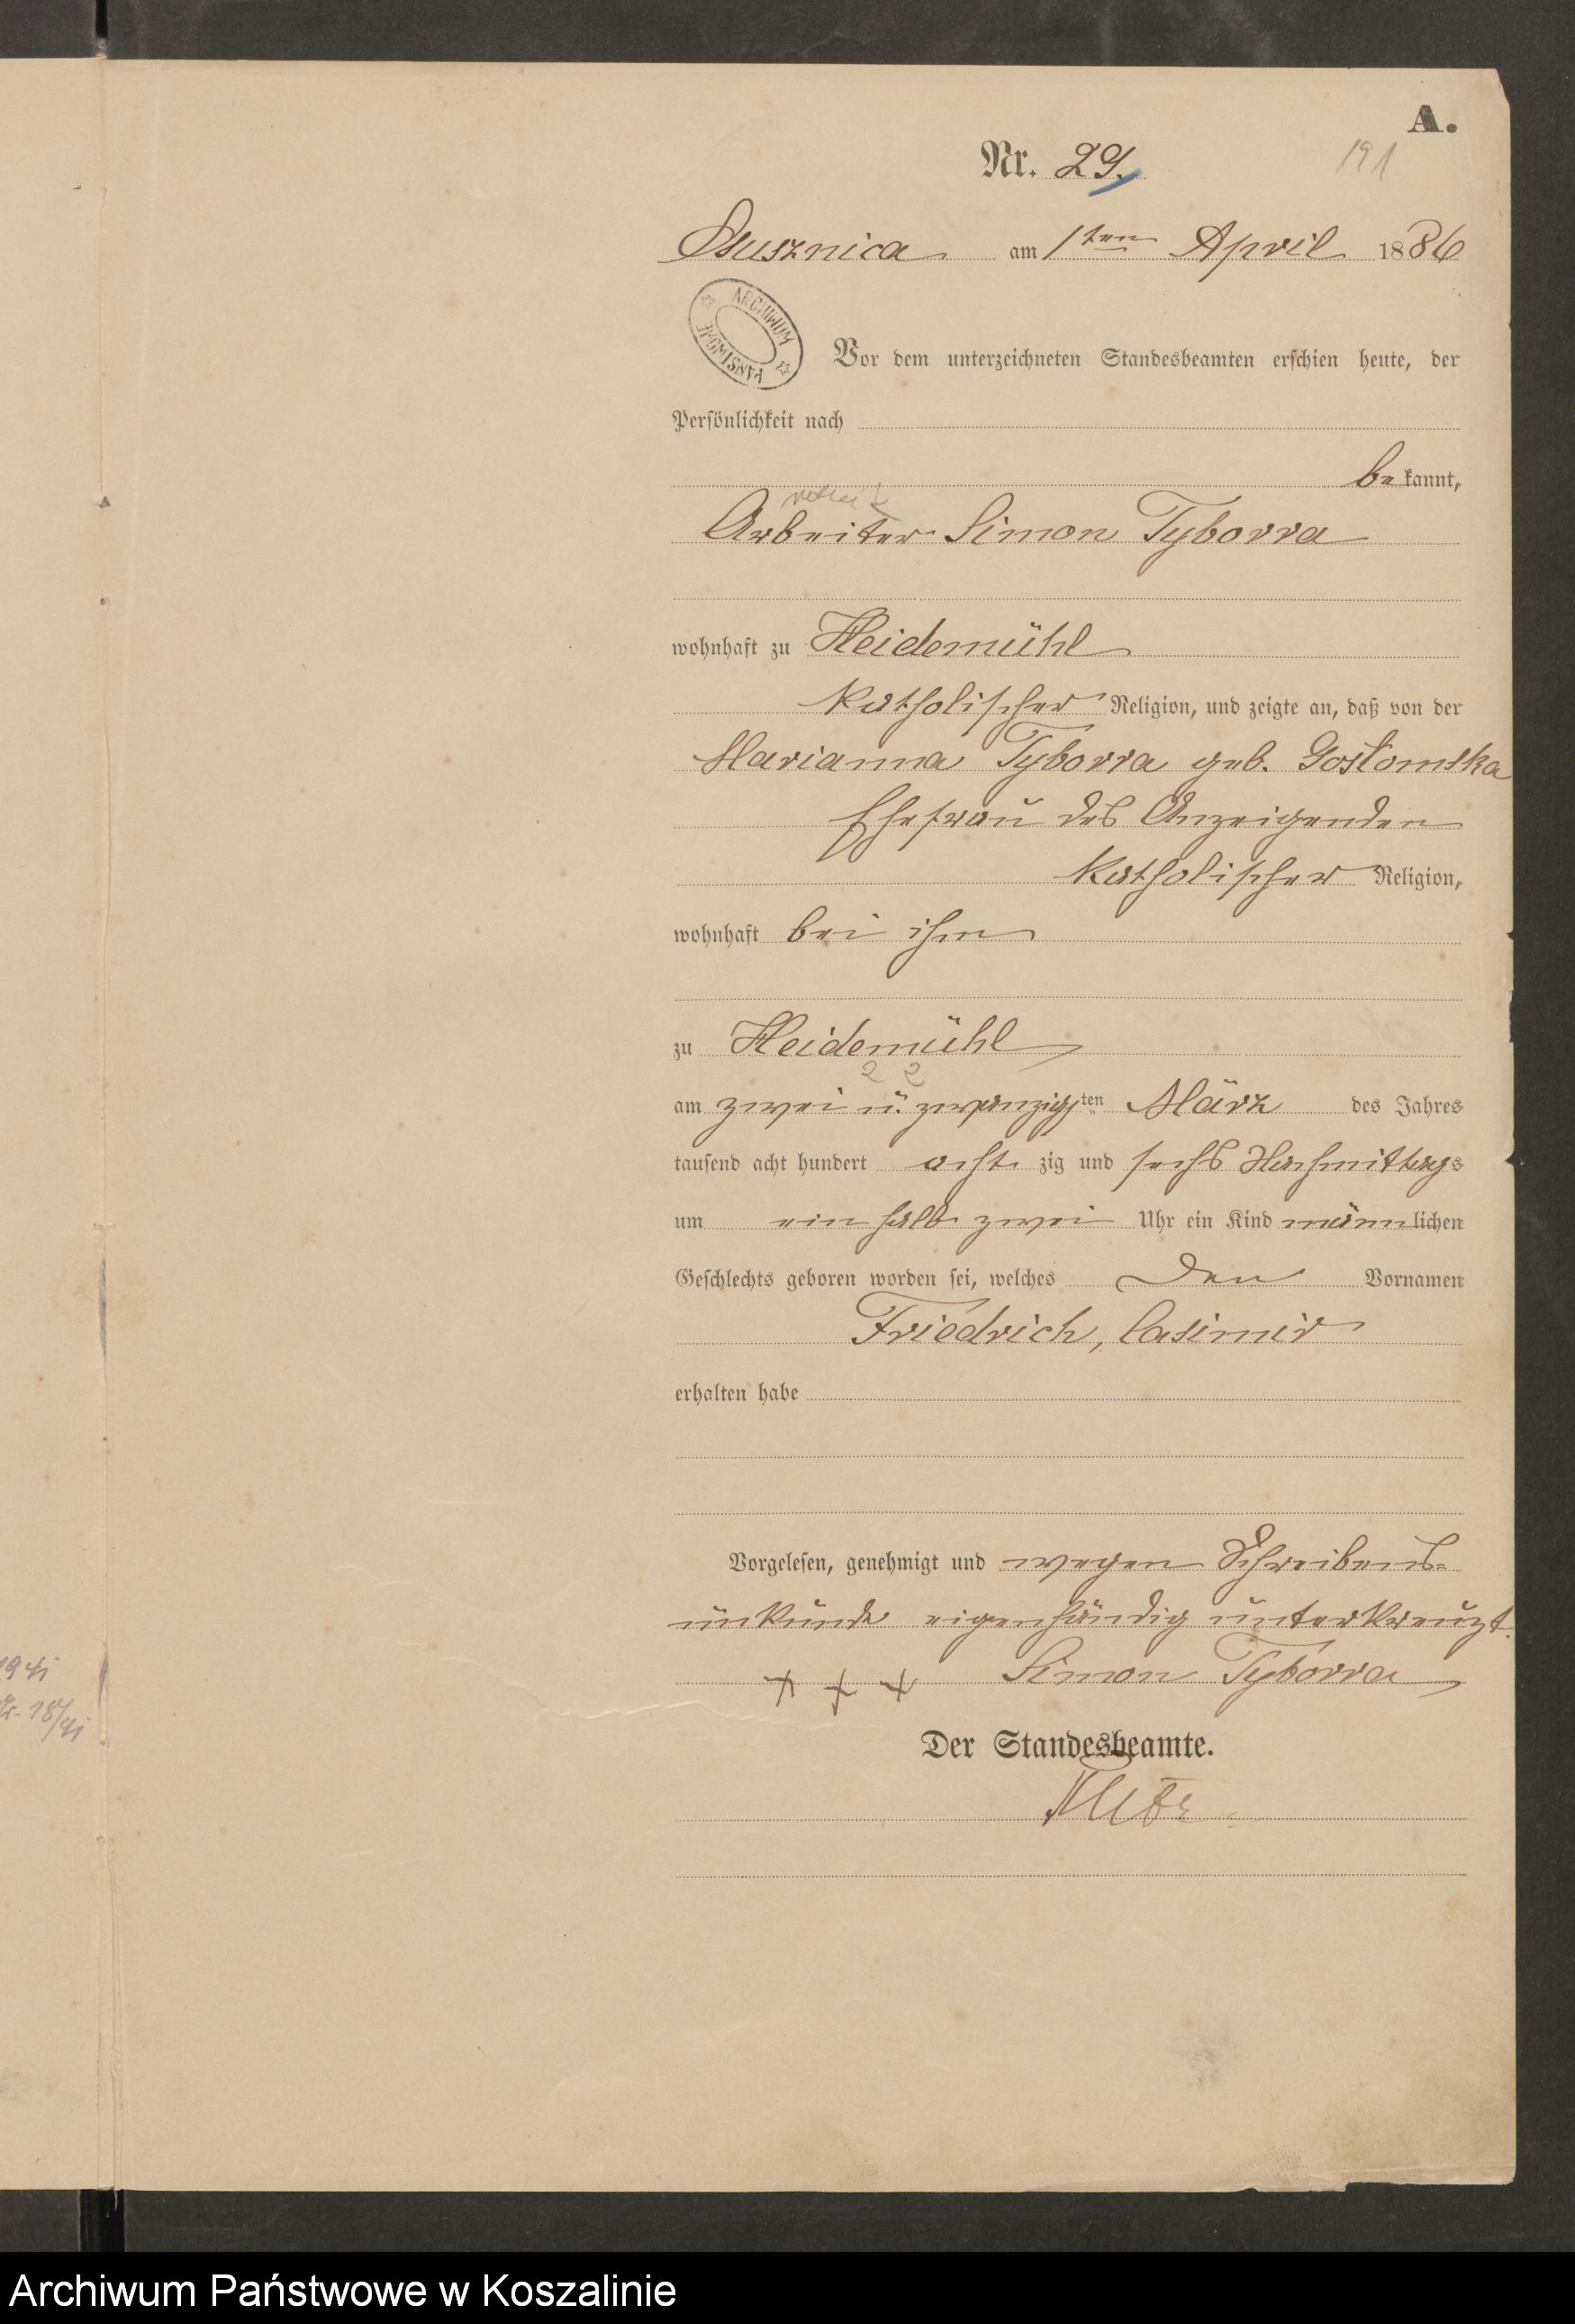 A.
Nr. 29.
191
Ossusznica am 1ten April 1886
ARCHIWUM PAŃSTWOWE
Vor dem unterzeichneten Standesbeamten erschien heute, der
Persönlichkeit nach
bekannt,
Arbeiter Simon Tyborra
wohnhaft zu Heidemühl
katholischer Religion, und zeigte an, daß von der
Marianna Tyborra geb. Gostomska
Ehefrau des Anzeigenden
katholischer Religion,
wohnhaft bei ihm
zu Heidemühl
22
am zwei u. zwanzigsten März des Jahres
tausend acht hundert acht zig und sechs Nachmittags
um ein halb zwei Uhr ein Kind männlichen
Geschlechts geboren worden sei, welches den Vornamen
Friedrich, Casimir
erhalten habe
Vorgelesen, genehmigt und wegen Schreibens-
unkunde eigenhändig unterkreuzt.
+ + + Simon Tyborra
Der Standesbeamte.
Archiwum Państwowe w Koszalinie